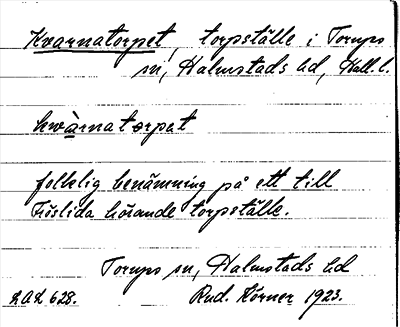 Kvarnatorpet, torpställe i Torups
sn, Halmstads hd, Hall. l.
kwàrnatorpat
folklig benämning på ett till
Fröslida hörande torpställe.
Torups sn, Halmstads hd
LAL 628. Rud. Körner 1923.